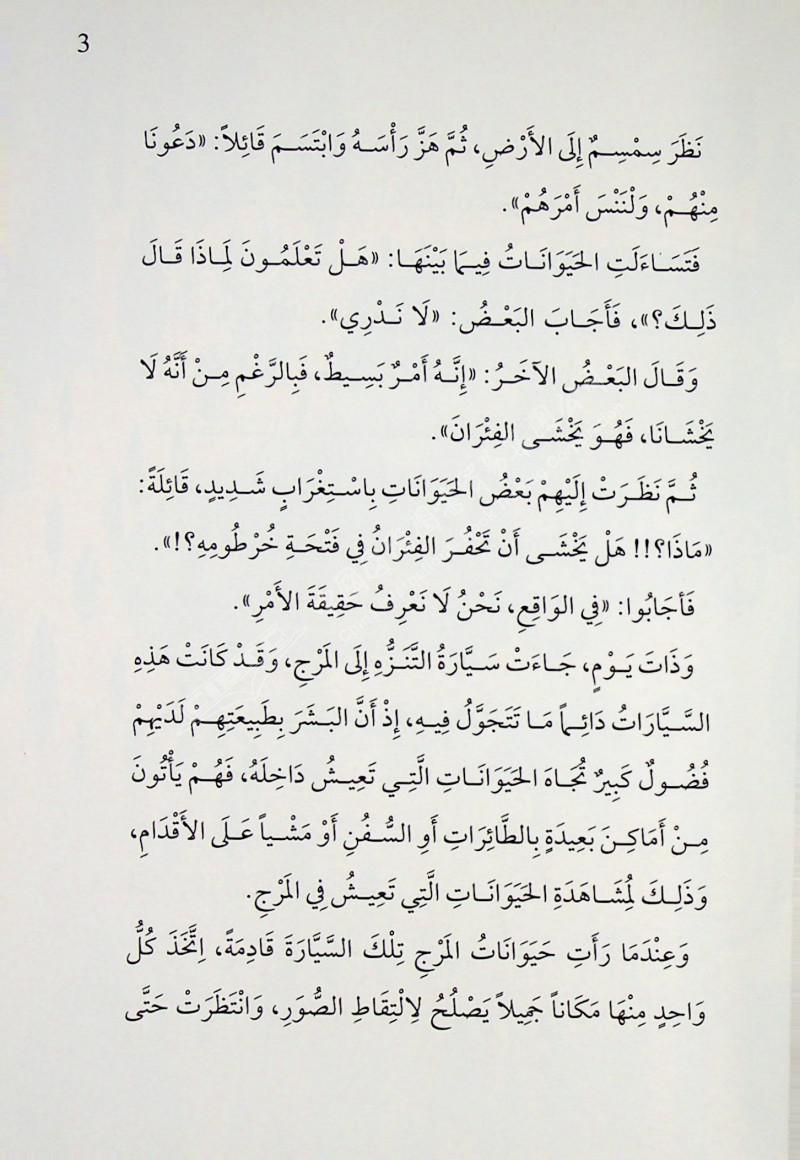 3
نَظَرَ سِمْسِمٌ إِلَى الأَرْضِ، ثُمَّ هَزَّ رَأْسَهُ وَابْتَسَمَ قَائِلاً: «دَعُونَا
مِنْهُمْ، وَلْنَنْسَ أَمْرَهُمْ».
فَتَسَاءَلَتِ الحَيَوَانَاتُ فِيمَا بَيْنَهَا: «هَلْ تَعْلَمُونَ لِمَاذَا قَالَ
ذَلِكَ؟»، فَأَجَابَ البَعْضُ: «لَا نَدْرِي».
وَقَالَ البَعْضُ الآخَرُ: «إِنَّهُ أَمْرٌ بَسِيطٌ، فَبِالرَّغْمِ مِنْ أَنَّهُ لَا
يَخْشَانَا، فَهُوَ يَخْشَى الفِئْرَانَ».
ثُمَّ نَظَرَتْ إِلَيْهِمْ بَعْضُ الحَيَوَانَاتِ بِاسْتِغْرَابٍ شَدِيدٍ، قَائِلَةً:
«مَاذَا؟!! هَلْ يَخْشَى أَنْ تَحْفُرَ الفِئْرَانُ فِي فَتْحَةِ خُرْطُومِهِ؟!».
فَأجَابُوا: «فِي الوَاقِعِ، نَحْنُ لَا نَعْرِفُ حَقِيقَةَ الأَمْرِ».
وَذَاتَ يَوْمٍ، جَاءَتْ سَيَّارَةُ التَّنَزُّهِ إِلَى المَرْجِ، وَقَدْ كَانَتْ هَذِهِ
السَّيَّارَاتُ دَائِماً مَا تَتَجَوَّلُ فِيهِ، إِذْ أَنَّ البَشَرَ بِطَبِيعَتِهِمْ لَدَيْهِمْ
فُضُولٌ كَبِيرٌ تُجَاهَ الحَيَوَانَاتِ الَّتِي تَعِيشُ دَاخِلَهُ، فَهُمْ يَأْتُونَ
مِنْ أَمَاكِنَ بَعِيدَةٍ بِالطَّائِرَاتِ أَوِ السُّفُنِ أَوْ مَشْياً عَلَى الأَقْدَامِ،
وَذَلِكَ لِمُشَاهَدَةِ الحَيَوَانَاتِ الَّتِي تَعِيشُ فِي المَرْجِ.
وَعِنْدَمَا رَأَتِ حَيَوَانَاتُ المَرْجِ تِلْكَ السَّيَّارَةَ قَادِمَةً، اِتَّخَذَ كُلُّ
وَاحِدٍ مِنْهَا مَكَاناً جَمِيلاً يَصْلُحُ لِالْتِقَاطِ الصُّوَرِ، وَانْتَظَرَتْ حَتَّى